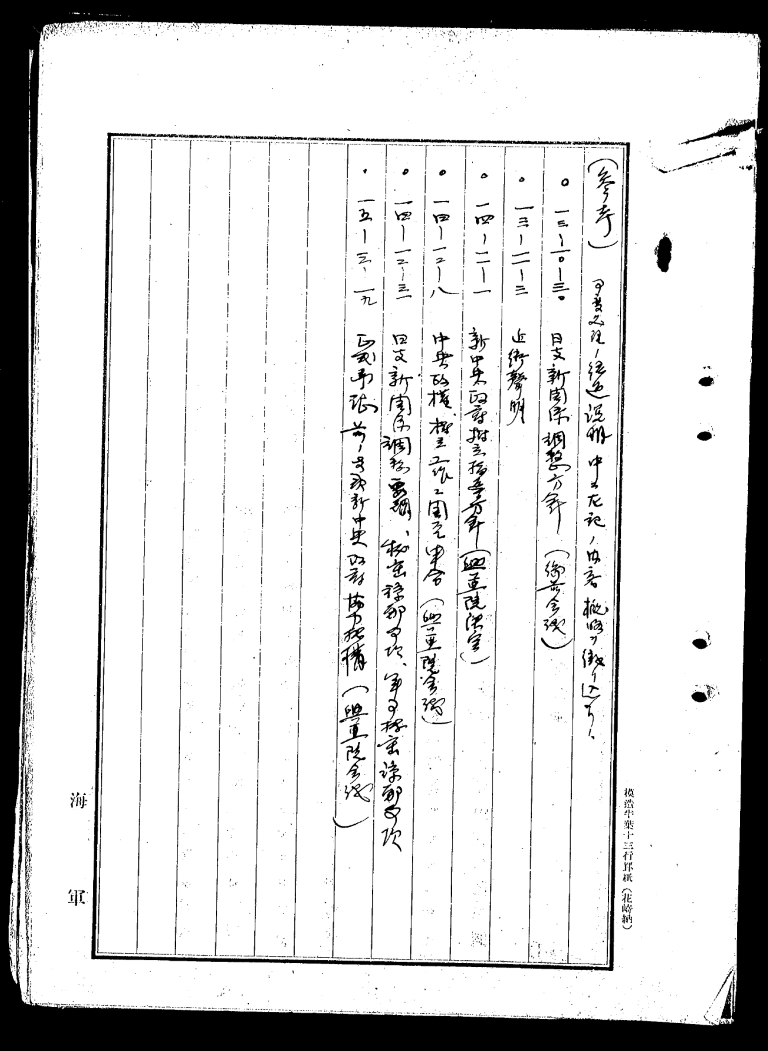 (参考)
事変処理ノ経過説明中ニ左記ノ内容概略ヲ織リ込ムコト
○ 一三―一一―三〇 日支新関係調整方針 (御前会議)
○ 一三―一二―三 近衛声明
○ 一四―一一―一 新中央政府樹立指導方針 (興亜院決定)
○ 一四―一二―八 中央政権樹立工作ニ関スル件 (興亜院会議)
○ 一四―一二―三一 日支新関係調整要綱、秘密諒解事項、軍事秘密諒解事項
○ 一五―三―一九 正式承認前ノ新中央政府協力機構 (興亜院会議)
海軍